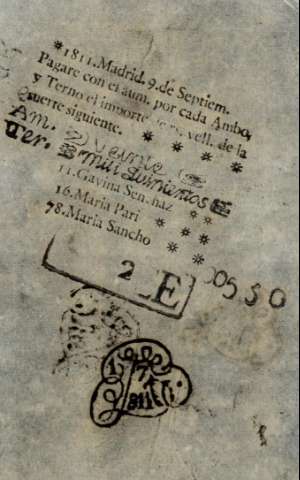 *1811. Madrid. 9. de Septiem.
Pagare con el aum. por cada Ambo,
y Terno el importe vell. de la
suerte siguiente.
Am. Veinte
Ter. mil quinientos
11. Gavina
16. Maria Pari
78. Maria Sancho
2 E